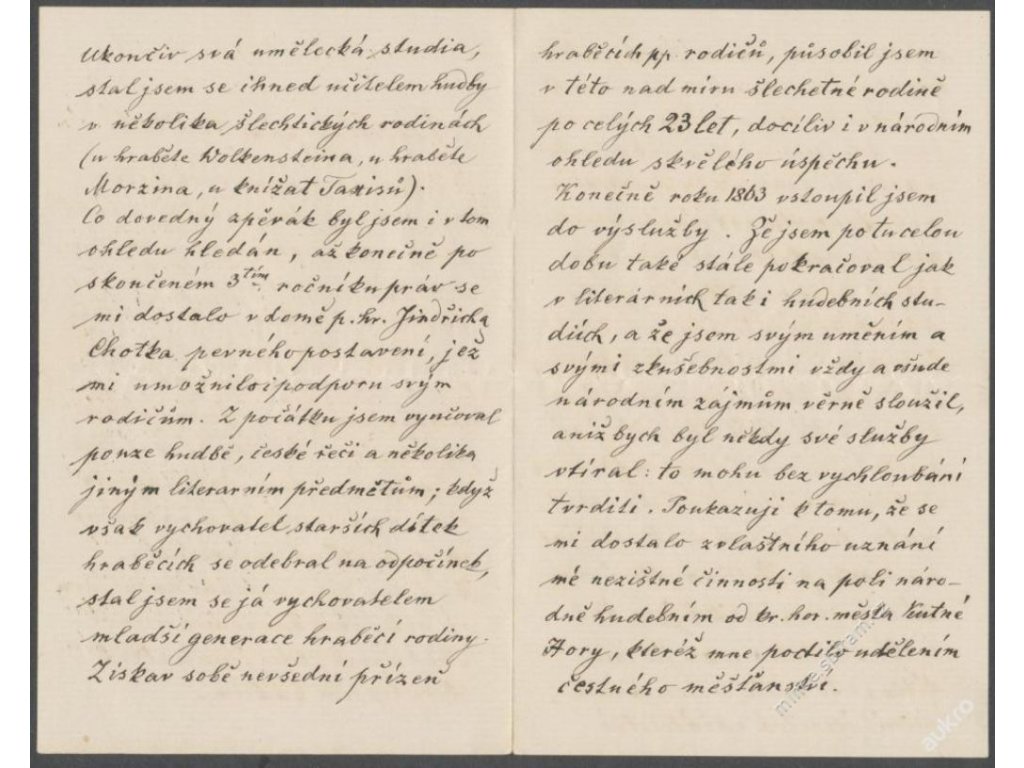 Ukončiv svá umělecká studia,
stal jsem se ihned učitelem hudby
v několika šlechtických rodinách
(u hraběte Wolkensteina, u hraběte
Morzina, u knížat Taxisů).
Co dovedný zpěvák byl jsem i v tom
ohledu hledán, až konečně po
skončeném 3tím ročníku práv se
mi dostalo v domě p. hr. Jindřicha
Chotka pevného postavení, jež
mi umožnilo i podporu svým
rodičům. Z počátku jsem vyučoval
pouze hudbě, české řeči a několika
jiným literarním předmětům; když
však vychovatel starších dítek
hraběcích se odebral na odpočinek,
stal jsem se já vychovatelem
mladší generace hraběcí rodiny.
Získav sobě nevšední přízeň
hraběcích pp. rodičů, působil jsem
v této nad míru šlechetné rodině
po celých 23 let, docíliv i v národním
ohledu skvělého úspěchu.
Konečně roku 1863 vstoupil jsem
do výslužby. Že jsem po tu celou
dobu také stále pokračoval jak
v literárních tak i hudebních stu-
diích, a že jsem svým uměním a
svými zkušebnostmi vždy a všude
národním zájmům věrně sloužil,
aniž bych byl někdy své služby
vtíral: to mohu bez vychloubání
tvrditi. Poukazuji k tomu, že se
mi dostalo zvlaštního uznání
mé nezištné činnosti na poli náro-
dně hudebním od kr. hor. města Kutné
Hory, kteréž mne poctilo udělením
čestného měšťanství.
aukro